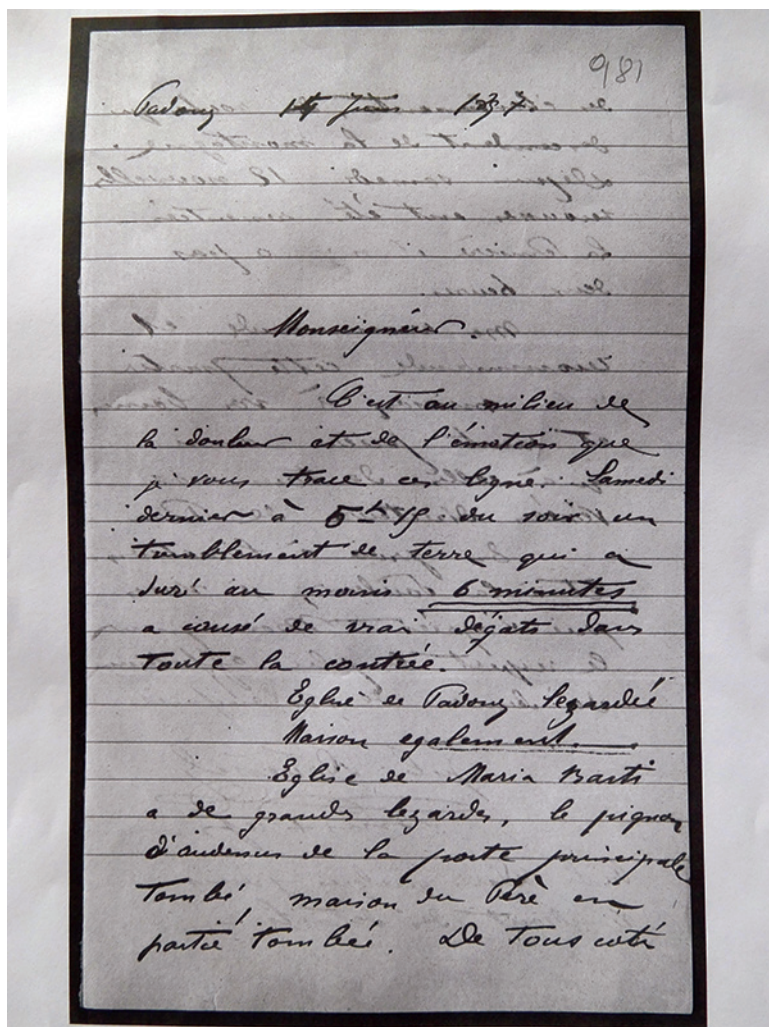 981
Padong 14 Juin 1897
Monseigneur
C'est au milieu de
la douleur et de l'émotion que
je vous trace ces ligne. Samedi
dernier à 5h 15 du soir un
tremblement de terre qui a
duré au moins 6 minutes
a causé de vrai dégats dans
toute la contrée.
Eglise de Padong lezardée
Maison egalement.
Eglise de Maria Basti
a de grandes lezardes, le pignon
d'audessus de la porte principale
tombé, maison du Père en
partie tombée. De tous coté